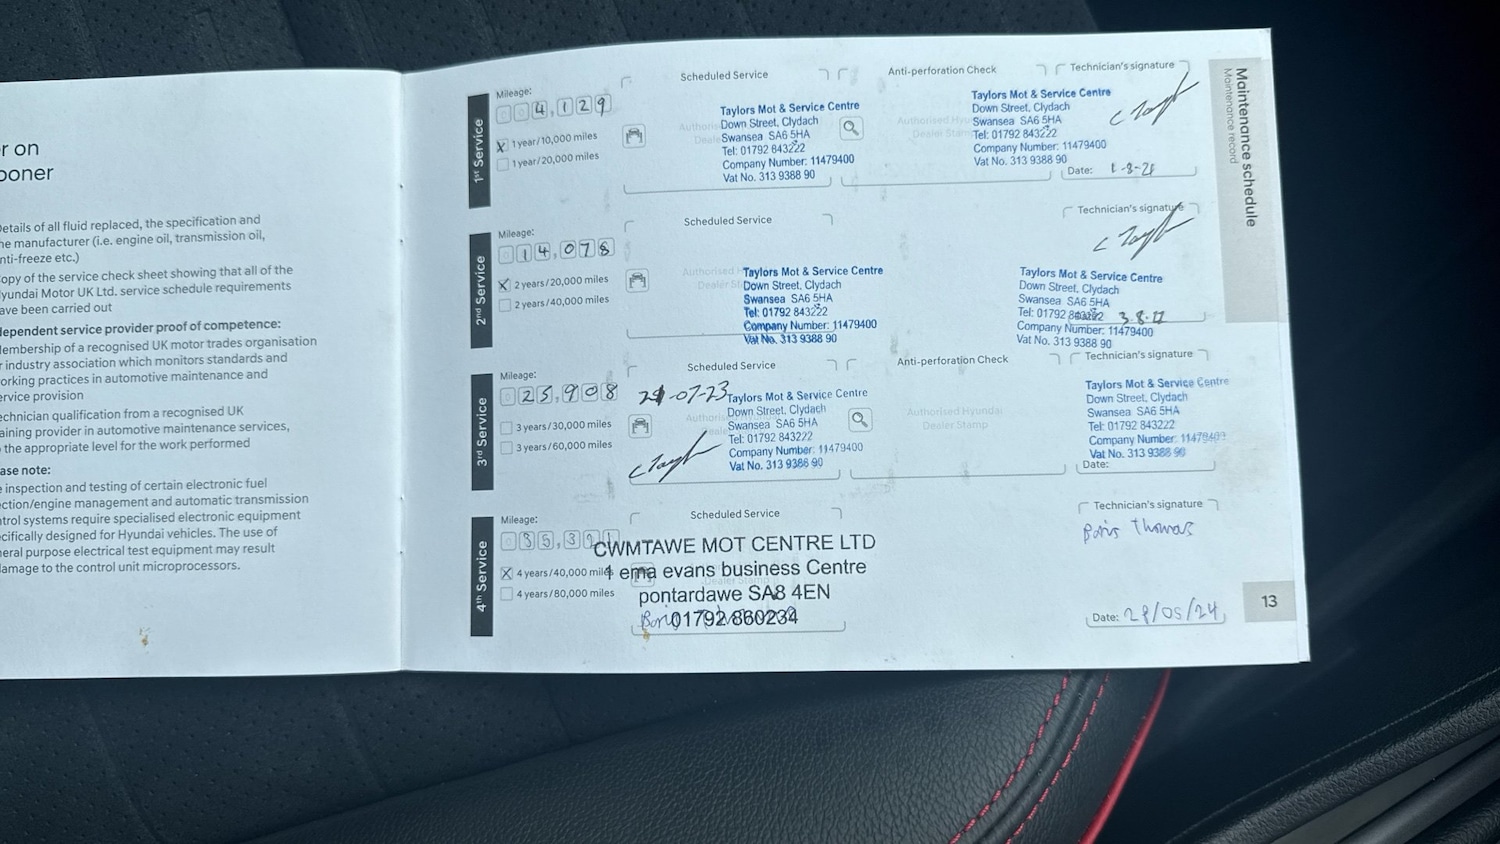 r on
ooner
Details of all fluid replaced, the specification and
he manufacturer (i.e. engine oil, transmission oil,
nti-freeze etc.)
copy of the service check sheet showing that all of the
lyundai Motor UK Ltd. service schedule requirements
ave been carried out
dependent service provider proof of competence:
Membership of a recognised UK motor trades organisation
r industry association which monitors standards and
orking practices in automotive maintenance and
ervice provision
echnician qualification from a recognised UK
aining provider in automotive maintenance services,
the appropriate level for the work performed
ase note:
e inspection and testing of certain electronic fuel
ection/engine management and automatic transmission
ntrol systems require specialised electronic equipment
cifically designed for Hyundai vehicles. The use of
neral purpose electrical test equipment may result
damage to the control unit microprocessors.
Maintenance schedule
Maintenance record
1st Service
Mileage:
004,129
X 1 year/10,000 miles
1 year/20,000 miles
Scheduled Service
Taylors Mot & Service Centre
Down Street, Clydach
Swansea SA6 5HA
Tel: 01792 843222
Company Number: 11479400
Vat No. 313 9388 90
Anti-perforation Check
Authorised Hyu
Dealer Stam
Technician's signature
C Tayl
Taylors Mot & Service Centre
Down Street, Clydach
Swansea SA6 5HA
Tel: 01792 843222
Company Number: 11479400
Vat No. 313 9388 90
Date:
2nd Service
Mileage:
014,078
X 2 years/20,000 miles
2 years/40,000 miles
Scheduled Service
Authorised H
Dealer St
Taylors Mot & Service Centre
Down Street, Clydach
Swansea SA6 5HA
Tel: 01792 843222
Company Number: 11479400
Vat No. 313 9388 90
Technician's signature
C Tayl
Taylors Mot & Service Centre
Down Street, Clydach
Swansea SA6 5HA
Tel: 01792 843222
Company Number: 11479400
Vat No. 313 9388 90
3rd Service
Mileage:
3 years/30,000 miles
3 years/60,000 miles
Scheduled Service
-07-23
Taylors Mot & Service Centre
Down Street, Clydach
Swansea SA6 5HA
Tel: 01792 843222
Company Number: 11479400
Vat No. 313 9388 90
C Tayl
Anti-perforation Check
Authorised Hyundai
Dealer Stamp
Technician's signature
Taylors Mot & Service Centre
Down Street, Clydach
Swansea SA6 5HA
Tel: 01792 843222
Company Number: 11479400
Vat No. 313 9388 90
Date:
4th Service
Mileage:
X 4 years/40,000 miles
4 years/80,000 miles
Scheduled Service
CWMTAWE MOT CENTRE LTD
1 ema evans business Centre
pontardawe SA8 4EN
01792 860234
Technician's signature
Boris Thomas
Date: 28/05/24
13